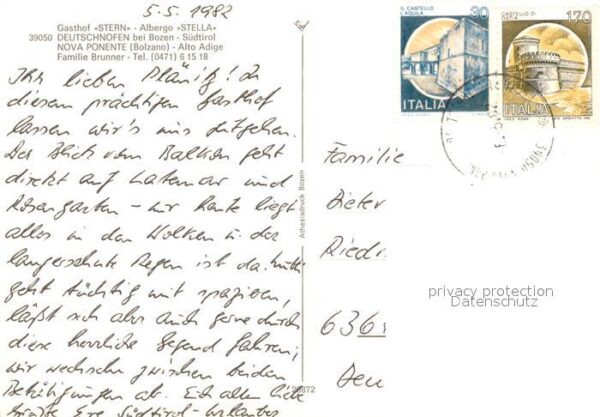 5.5.1982
Gasthof »STERN« - Albergo »STELLA«
39050 DEUTSCHNOFEN bei Bozen - Südtirol
NOVA PONENTE (Bolzano) - Alto Adige
Familie Brunner - Tel. (0471) 6 15 18
Ihr lieben Plänitz! In
diesem prächtigen Gasthof
lassen wir's uns gutgehen.
Der Blick vom Balkon geht
direkt auf Latemar und
Rosengarten - nur heute liegt
alles in den Wolken u. der
langersehnte Regen ist da. Mutti
geht tüchtig mit spazieren,
läßt sich aber auch gerne durch
diese herrliche Gegend fahren;
wir wechseln zwischen beiden
Betätigungen ab. Euch allen liebe
Grüße Eure Südtirol-Urlauber
Athesiadruck Bozen
26872
IL CASTELLO
L'AQUILA
30
ITALIA
CASTELLO DI
OSTIA
170
ITALIA
39050
Familie
Dieter
Riedr
636
Deu
privacy protection
Datenschutz